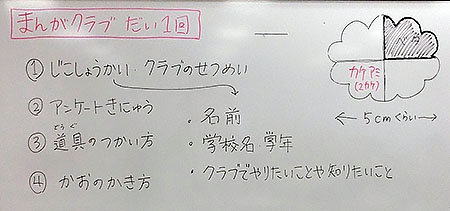 まんがクラブ だい1回
① じこしょうかい・クラブのせつめい
② アンケートきにゅう
・名前
③ 道具のつかい方
どうぐ
・学校名・学年
④ かおのかき方
・クラブでやりたいことや知りたいこと
カケアミ
(2カケ)
5cmくらい